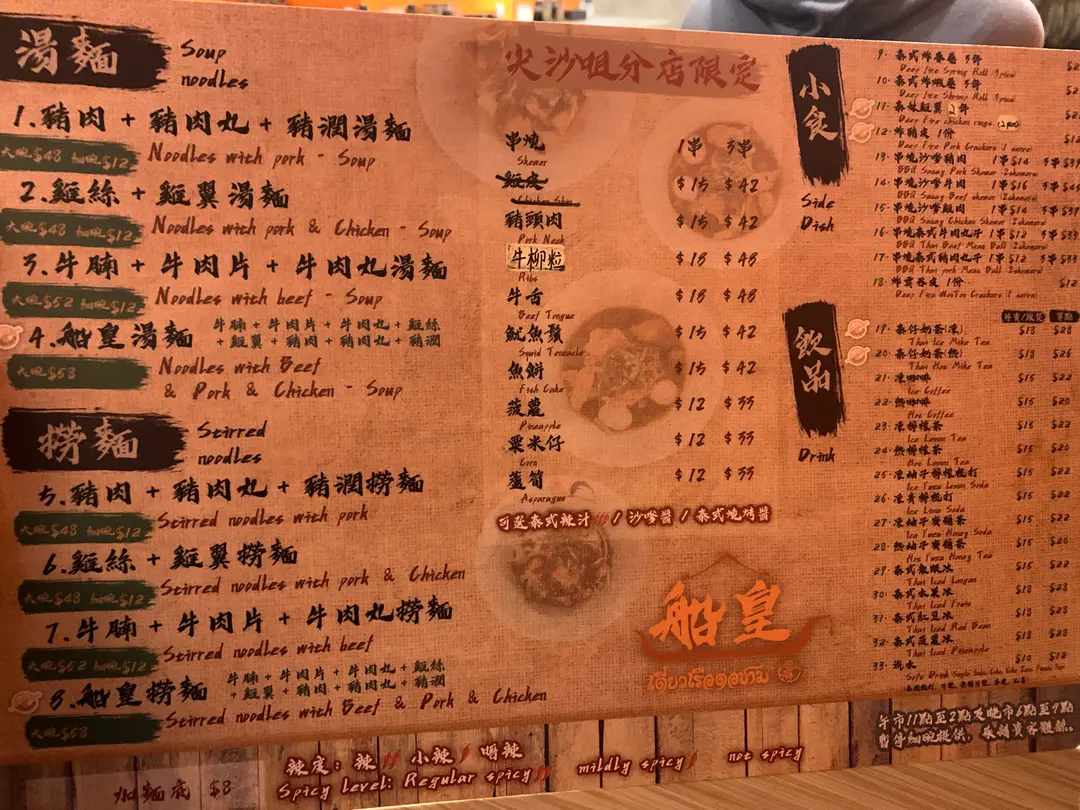 湯麵
Soup
noodles
1.豬肉 + 豬肉丸 + 豬潤湯麵
大碗$48 細碗$12
Noodles with pork - Soup
2.雞絲 + 雞翼湯麵
大碗$48 細碗$12
Noodles with pork & Chicken - Soup
3.牛腩 + 牛肉片 + 牛肉丸湯麵
大碗$52 細碗$12
Noodles with beef - Soup
4.船皇湯麵
牛腩 + 牛肉片 + 牛肉丸 + 雞絲
+ 雞翼 + 豬肉 + 豬肉丸 + 豬潤
大碗$58
Noodles with Beef
& Pork & Chicken - Soup
撈麵
Stirred
noodles
5.豬肉 + 豬肉丸 + 豬潤撈麵
大碗$48 細碗$12
Stirred noodles with pork
6.雞絲 + 雞翼撈麵
大碗$48 細碗$12
Stirred noodles with pork & Chicken
7.牛腩 + 牛肉片 + 牛肉丸撈麵
大碗$52 細碗$12
Stirred noodles with beef
8.船皇撈麵
牛腩 + 牛肉片 + 牛肉丸 + 雞絲
+ 雞翼 + 豬肉 + 豬肉丸 + 豬潤
大碗$58
Stirred noodles with Beef & Pork & Chicken
加麵底 $8
辣度: 辣 小辣 唔辣
Spicy level: Regular spicy mildly spicy not spicy
尖沙咀分店限定
串燒 1串 3串
Skewer
雞皮 $15 $42
Chicken Skin
豬頭肉 $15 $42
Pork Neck
牛柳粒 $18 $48
Ribs
牛舌 $18 $48
Beef Tongue
魷魚鬚 $15 $42
Squid Tentacle
魚餅 $15 $42
Fish Cake
菠蘿 $12 $33
Pineapple
粟米仔 $12 $33
Corn
蘆筍 $12 $33
Asparagus
可選泰式辣汁 / 沙嗲醬 / 泰式燒烤醬
船皇
ก๋วยเตี๋ยวเรือ
小食
Side
Dish
9. 泰式炸春卷 3件
Deep Fire Spring Roll
10. 泰式炸蝦卷 3件
Deep Fire Shrimp Roll
11. 泰妹雞翼 2件
Deep Fire chicken rings
12. 炸豬皮 1份
Deep Fire Pork Crackers
13. 串燒沙嗲豬肉 1串$14 3串$39
BBQ Satay Pork Skewer
14. 串燒沙嗲牛肉 1串$16
BBQ Satay Beef skewer
15. 串燒沙嗲雞肉 1串$14 3串$39
BBQ Satay Chicken Skewer
16. 串燒泰式牛肉丸子 1串$12 3串$33
BBQ Thai Beef Meat Ball
17. 串燒泰式豬肉丸子 1串$12 3串$33
BBQ Thai pork Meat Ball
18. 炸雲吞皮 1份 $12
Deep Fire WonTon Crackers
飲品
Drink
19. 泰仔奶茶(凍) $18 $28
Thai Ice Milk Tea
20. 泰仔奶茶(熱) $18 $26
Thai Hot Milk Tea
21. 凍咖啡 $15 $22
Ice Coffee
22. 熱咖啡 $15 $20
Hot Coffee
23. 凍檸檬茶 $15 $22
Ice Lemon Tea
24. 熱檸檬茶 $15 $20
Hot Lemon Tea
25. 凍柚子檸檬梳打 $15 $22
Ice Yuzu Lemon Soda
26. 凍青檸梳打 $15 $22
Ice Lime Soda
27. 凍柚子蜜糖茶 $15 $22
Ice Yuzu Honey Soda
28. 熱柚子蜜糖茶 $15 $20
Hot Yuzu Honey Tea
29. 泰式龍眼冰 $18 $28
Thai Iced Longan
30. 泰式水果冰 $18 $28
Thai Iced Fruits
31. 泰式紅豆冰 $18 $28
Thai Iced Red Bean
32. 泰式菠蘿冰 $18 $28
Thai Iced Pineapple
33. 汽水 $10 $12
午市11點至2點及晚市6點至9點
暫停細碗提供，敬請貴客體諒。